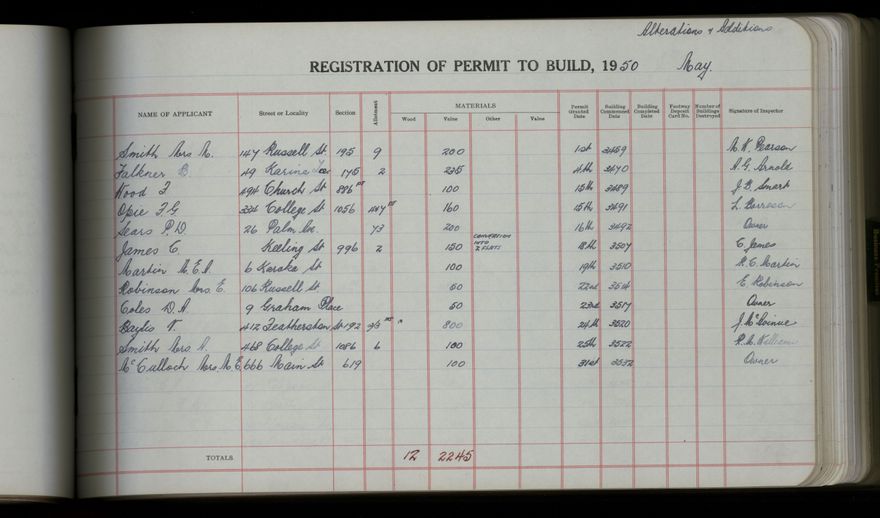 Alterations & Additions
REGISTRATION OF PERMIT TO BUILD, 1950 May.
NAME OF APPLICANT Street or Locality Section Allotment MATERIALS Permit Granted Date Building Commenced Date Building Completed Date Footway Deposit Card No. Number of Buildings Destroyed Signature of Inspector
Wood Value Other Value
Smith Mrs. M. 147 Russell St 195 9 200 1st 3459 Pearson
Falkner B. 49 Karina 175 2 235 4th 3470 A. G. Arnold
Wood F. 494 Church St 886 pt 100 15th 3489 J. B. Smart
Opie F. G. 334 College St 1056 pt 160 15th 3491 L.
Sears P. D. 26 Palm Ave. 73 200 16th 3492 Owner
James C. Keeling St 996 2 150 CONVERSION INTO 2 FLATS 18th 3507 C. James
Martin M. E. A. 6 Karaka St 100 19th 3510 Martin
Robinson Mrs. E. 106 Russell St 50 22nd 3514 E. Robinson
Coles D. A. 9 Graham Place 50 23rd 3517 Owner
Baylis V. 412 Featherston St 192 pt " 800 24th 3520 J.
Smith Mrs 468 College St 1086 6 100 25th 3522
McCulloch Mrs. M. E. 666 Main St 619 100 31st 3532 Owner
TOTALS 12 2245